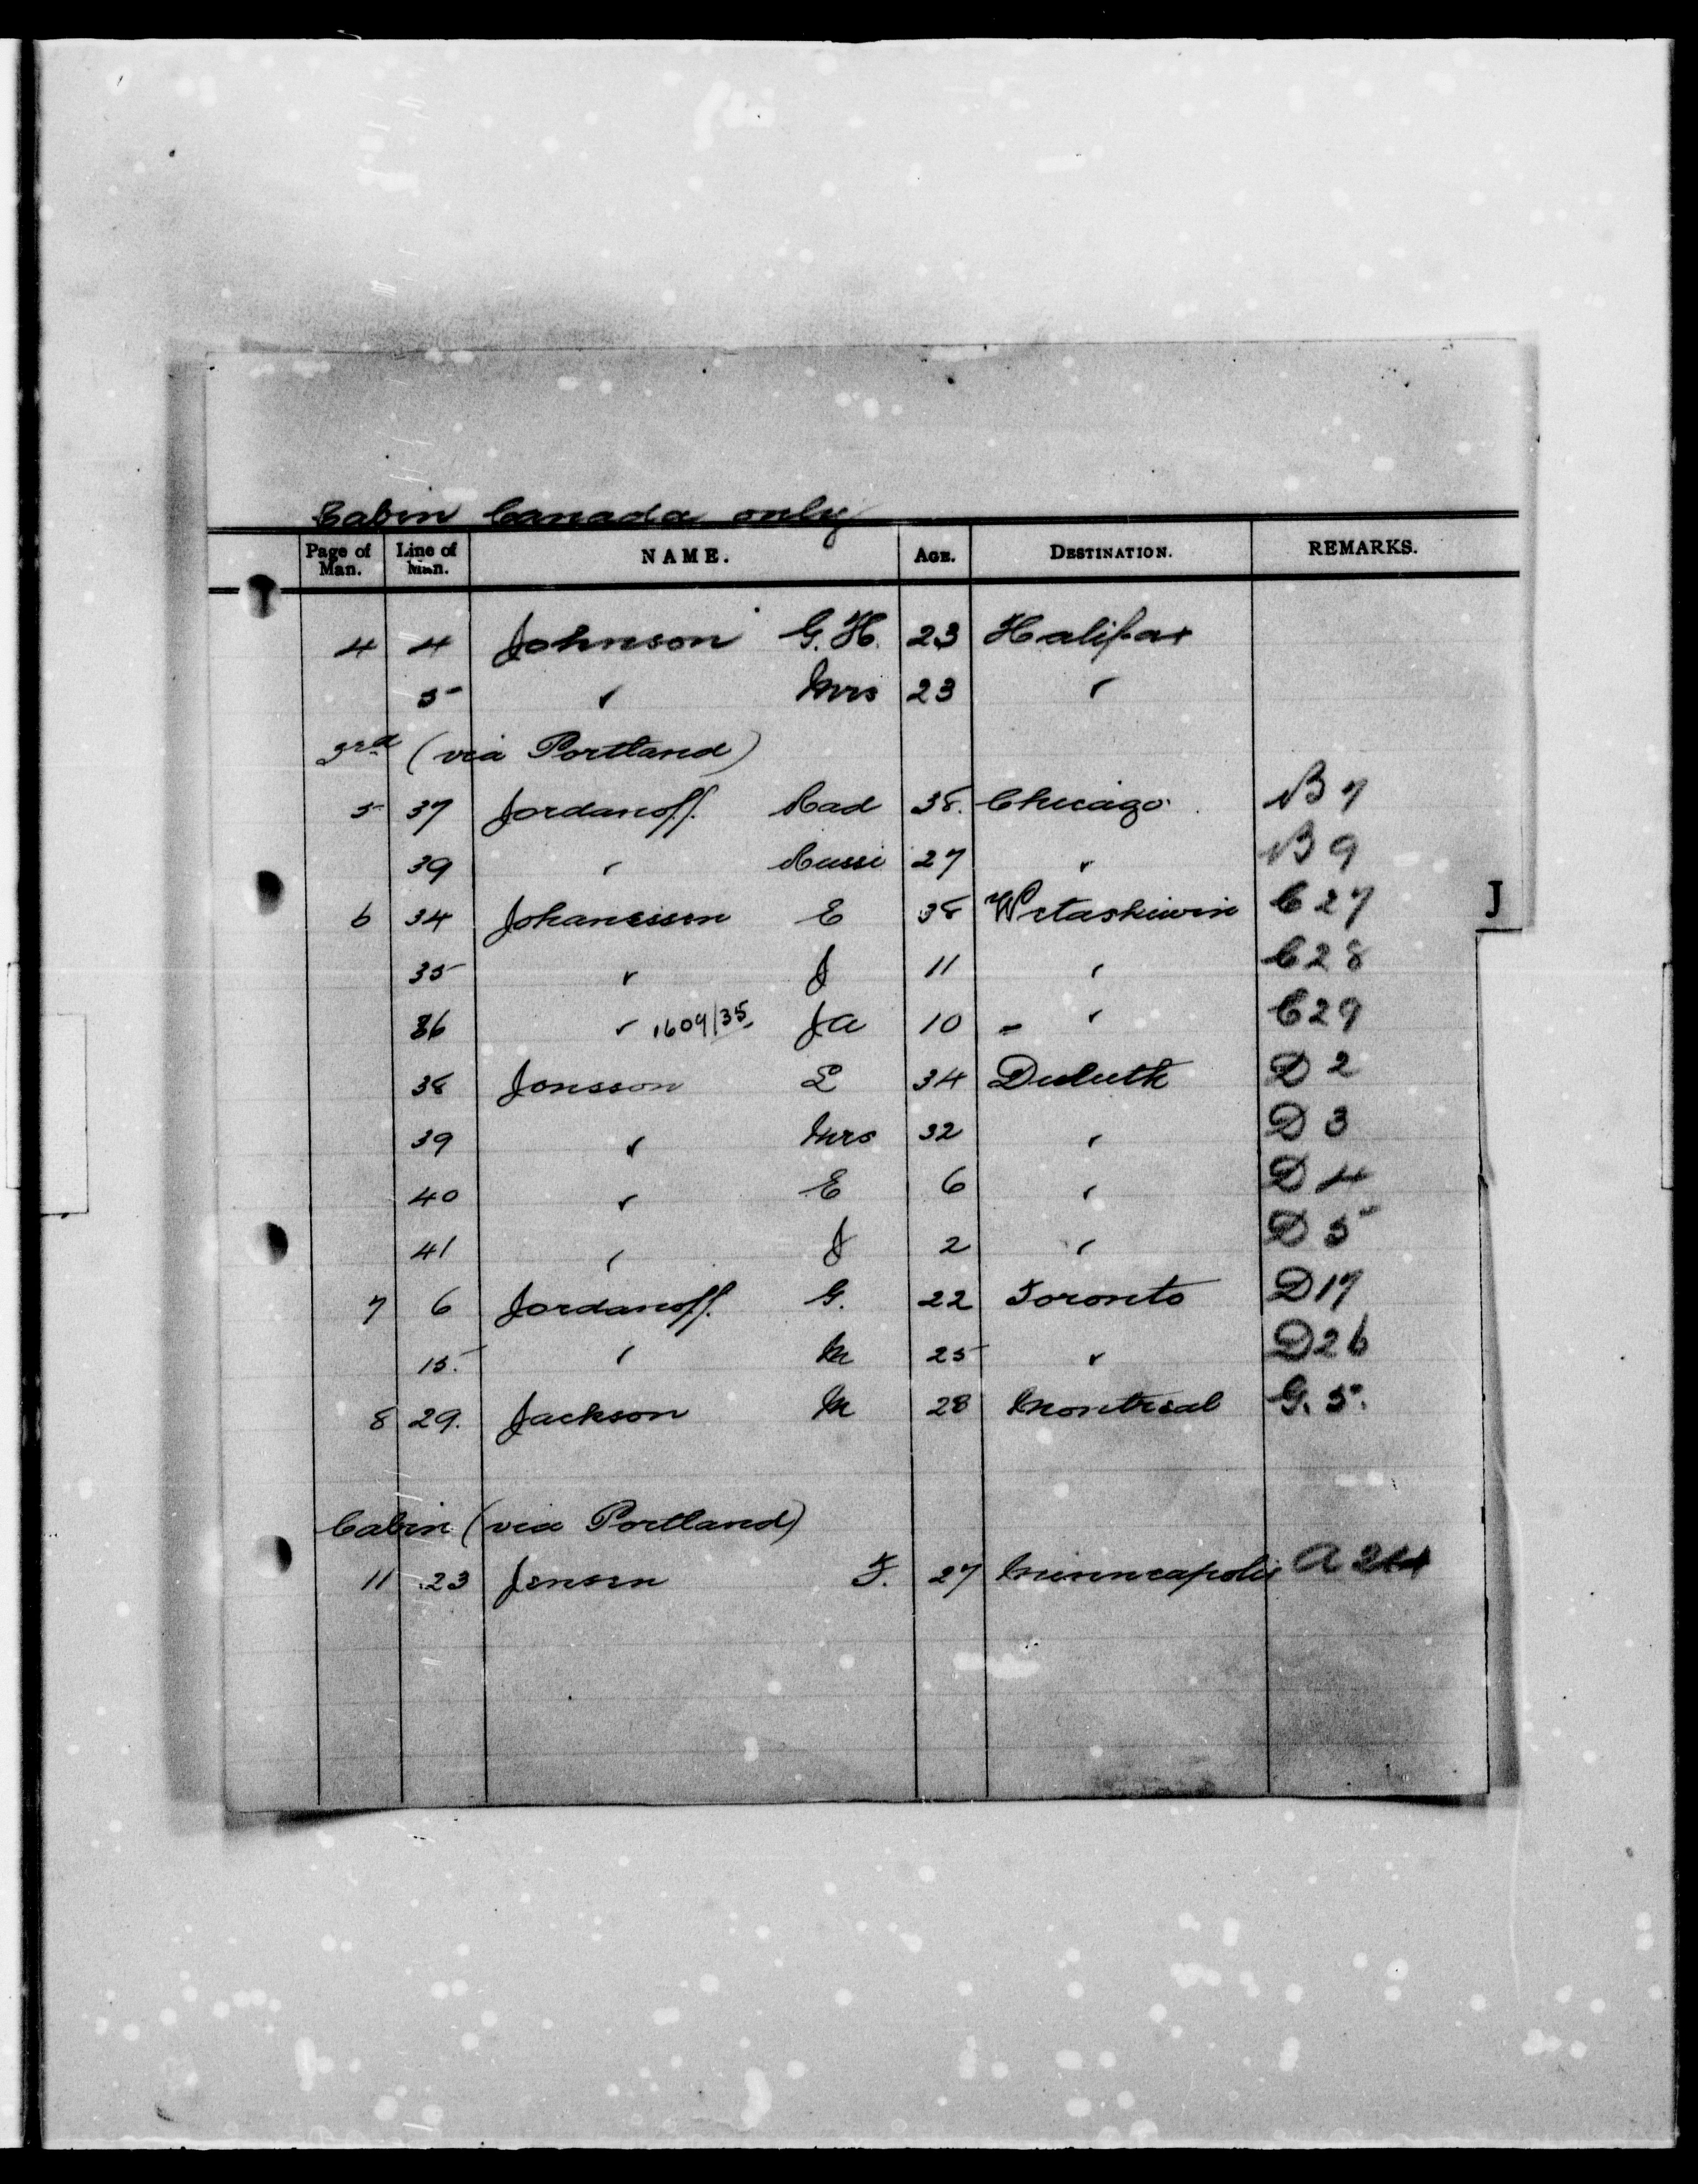 Cabin Canada only
Page of Man. Line of Man. NAME. AGE. DESTINATION. REMARKS.
4 4 Johnson G. H. 23 Halifax
5 " Mrs 23 "
3rd (via Portland)
5 37 Jordanoff. Rad 38. Chicago B 7
39 " Russi 27 " B 9
6 34 Johanssen E 38 Wetaskiwin C 27
J
35 " J 11 " C 28
36 " 1609/35 JA 10 - " C 29
38 Jonsson L 34 Duluth D 2
39 " Mrs 32 " D 3
40 " E 6 " D 4
41 " J 2 " D 5
7 6 Jordanoff. G. 22 Toronto D 17
15. " M 25 " D 26
8 29. Jackson M 28 Montreal G. 5.
Cabin (via Portland)
11 23 Jensen F. 27 Minneapolis A